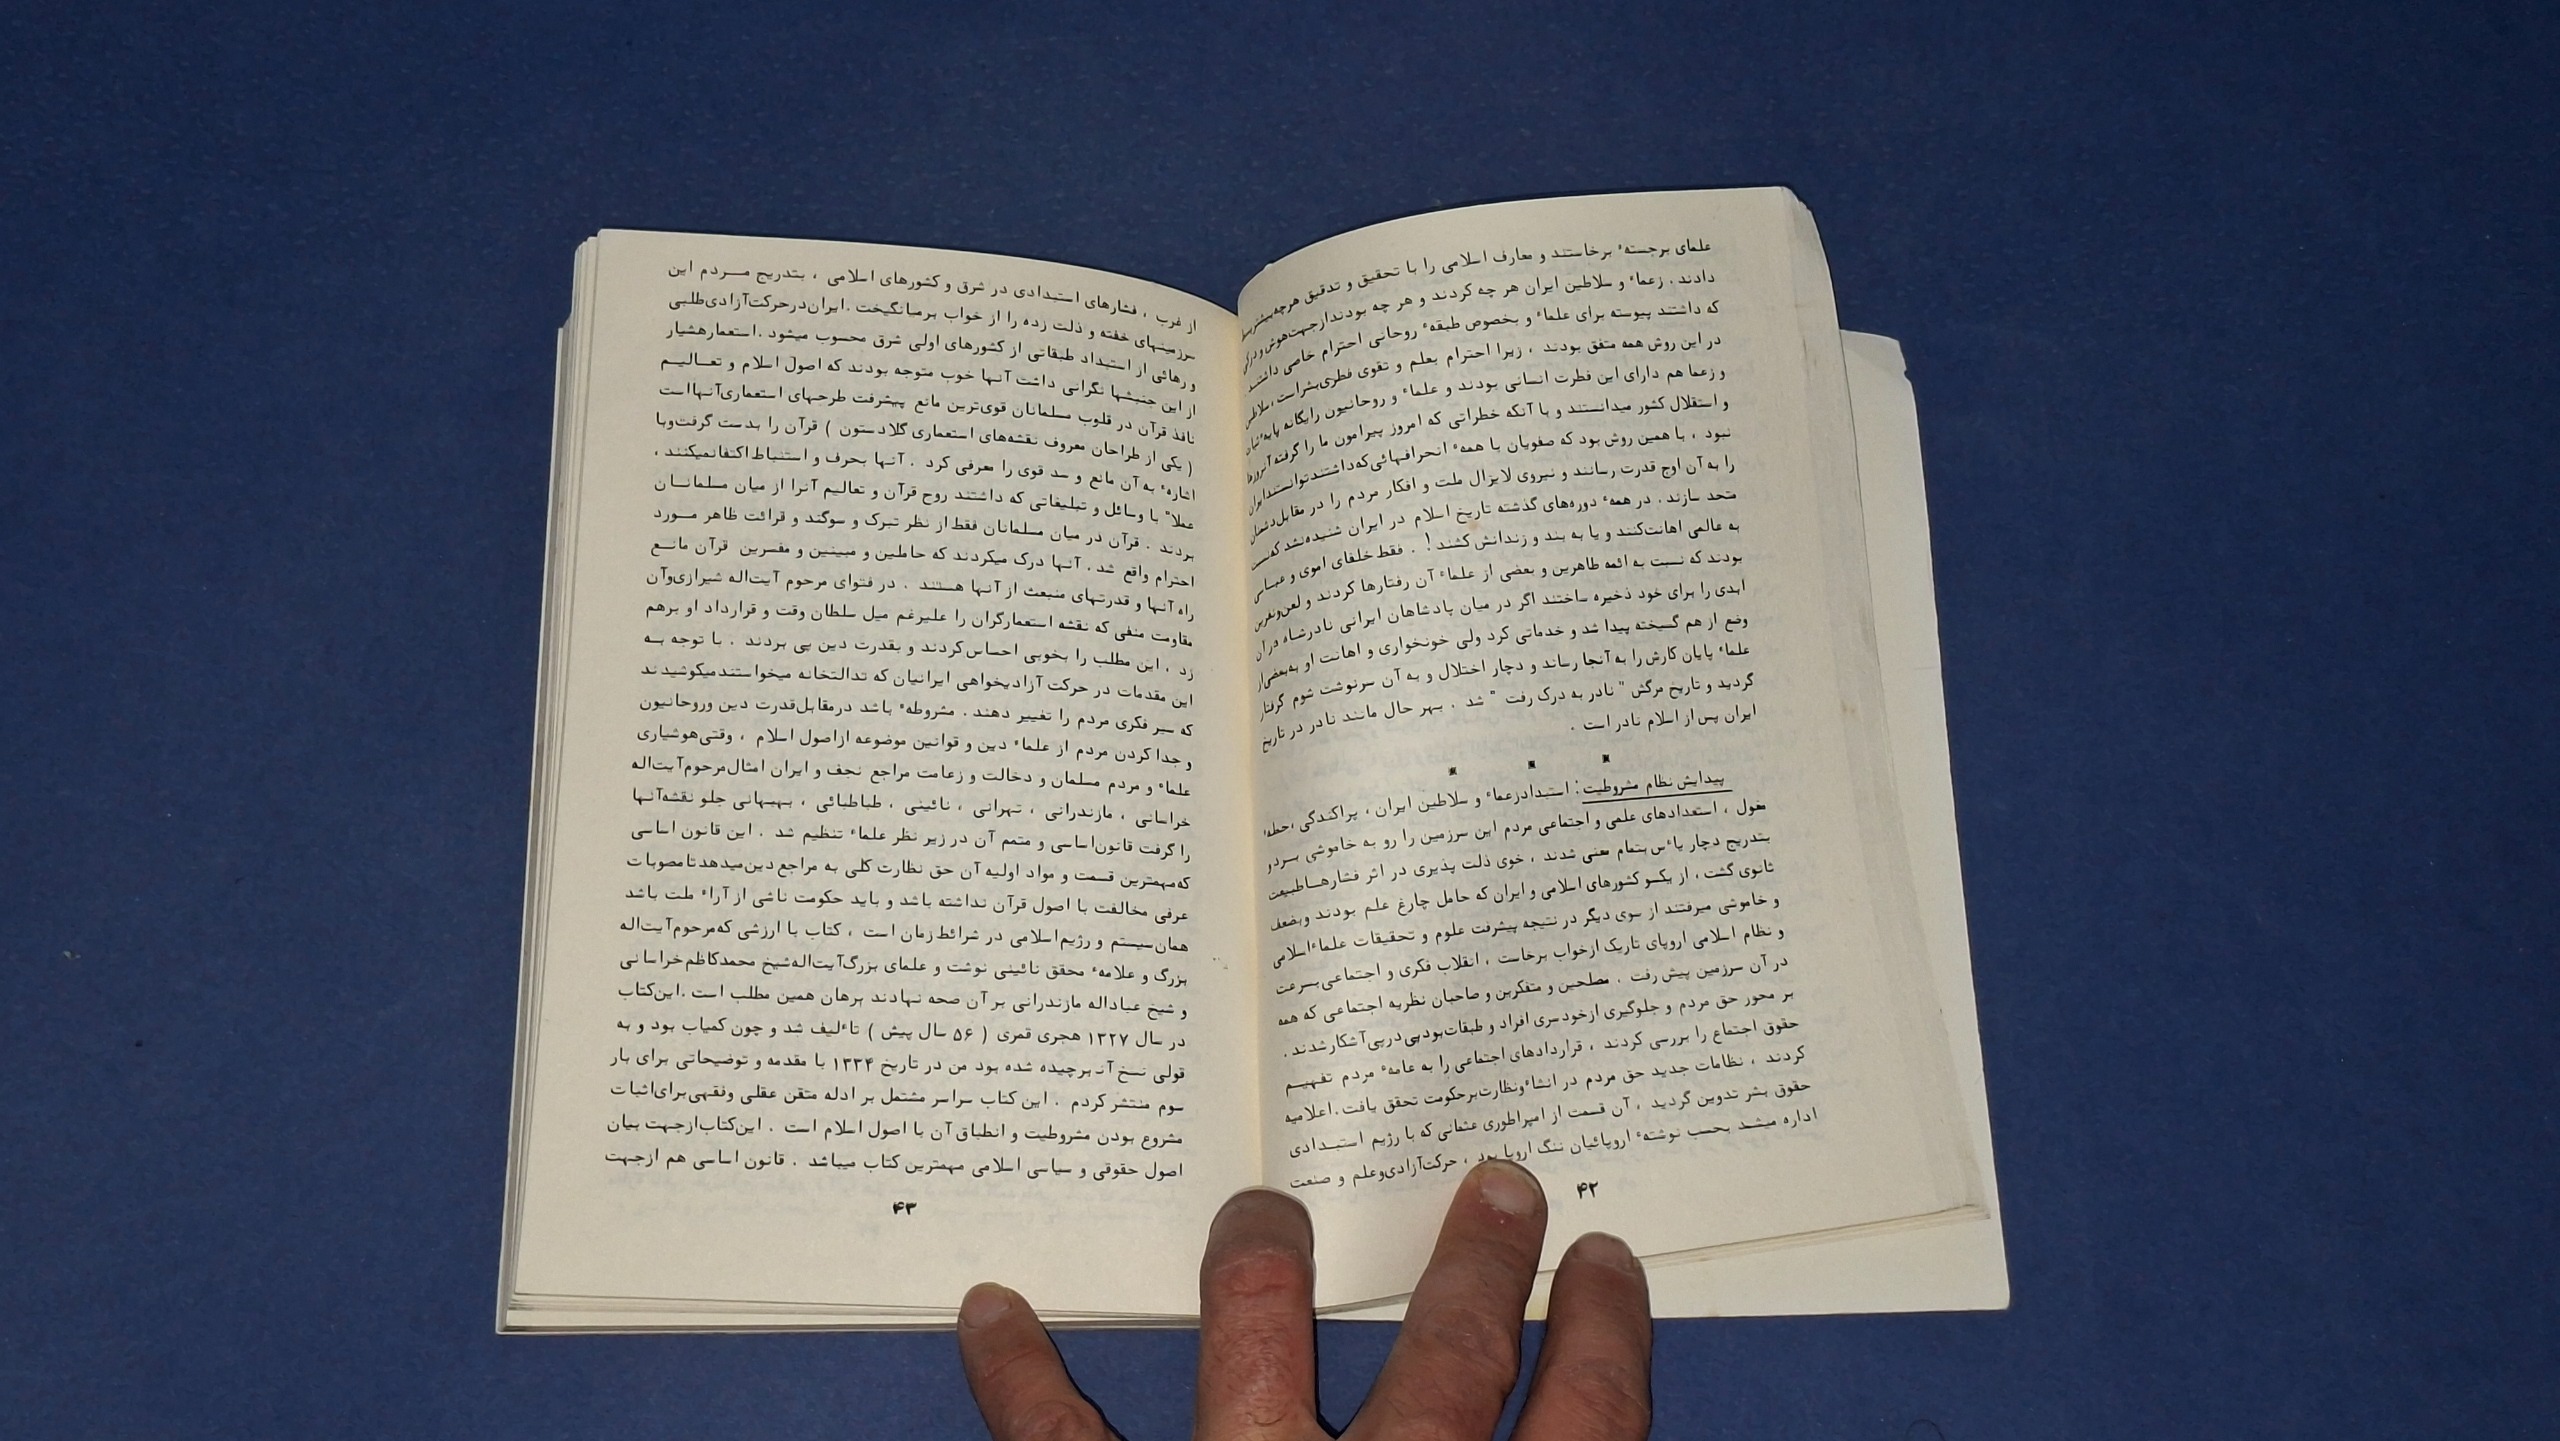 علمای برجسته‌ٔ برخاستند و معارف اسلامی را با تحقیق و تدقیق هرچه بیشتر بسط
دادند . زعماء و سلاطین ایران هر چه کردند و هر چه بودند ازجهت هوش و درکی
که داشتند پیوسته برای علماء و بخصوص طبقهء روحانی احترام خاصی داشتند
در این روش همه متفق بودند ، زیرا احترام بعلم و تقوی فطری بشر است ، سلاطین
و زعما هم دارای این فطرت انسانی بودند و علماء و روحانیون را یگانه پایهء ثبات
و استقلال کشور میدانستند و با آنکه خطراتی که امروز پیرامون ما را گرفته آنروزها
نبود ، با همین روش بود که صفویان با همهء انحرافهائی که داشتند توانستند ایران
را به آن اوج قدرت رسانند و نیروی لایزال ملت و افکار مردم را در مقابل دشمنان
متحد سازند . در همهء دوره‌های گذشته تاریخ اسلام در ایران شنیده نشد که نسبت
به عالمی اهانت کنند و یا به بند و زندانش کشند ! . فقط خلفای اموی و عباسی
بودند که نسبت به ائمه طاهرین و بعضی از علماء آن رفتارها کردند و لعن و نفرین
ابدی را برای خود ذخیره ساختند اگر در میان پادشاهان ایرانی نادرشاه در آن
وضع از هم گسیخته پیدا شد و خدماتی کرد ولی خونخواری و اهانت او به بعضی از
علماء پایان کارش را به آنجا رساند و دچار اختلال و به آن سرنوشت شوم گرفتار
گردید و تاریخ مرگش " نادر به درک رفت " شد . بهر حال مانند نادر در تاریخ
ایران پس از اسلام نادر است .
پیدایش نظام مشروطیت : استبداد زعماء و سلاطین ایران ، پراکندگی ، حمله
مغول ، استعدادهای علمی و اجتماعی مردم این سرزمین را رو به خاموشی بردو
بتدریج دچار یاءس بتمام معنی شدند ، خوی ذلت پذیری در اثر فشارها طبیعت
ثانوی گشت ، از یکسو کشورهای اسلامی و ایران که حامل چارغ علم بودند و بضعف
و خاموشی میرفتند از سوی دیگر در نتیجه پیشرفت علوم و تحقیقات علماء اسلامی
و نظام اسلامی اروپای تاریک ازخواب برخاست ، انقلاب فکری و اجتماعی بسرعت
در آن سرزمین پیش رفت . مصلحین و متفکرین و صاحبان نظریه اجتماعی که همه
بر محور حق مردم و جلوگیری ازخودسری افراد و طبقات بود پی در پی آشکار شدند .
حقوق اجتماع را بررسی کردند ، قراردادهای اجتماعی را به عامهء مردم تفهیم
کردند ، نظامات جدید حق مردم در انشاء و نظارت برحکومت تحقق یافت . اعلامیه
حقوق بشر تدوین گردید ، آن قسمت از امپراطوری عثمانی که با رژیم استبدادی
اداره میشد بحسب نوشتهء اروپائیان ننگ اروپا بود ، حرکت آزادی و علم و صنعت
۴۲
از غرب ، فشارهای استبدادی در شرق و کشورهای اسلامی ، بتدریج مردم این
سرزمینهای خفته و ذلت زده را از خواب برمیانگیخت . ایران درحرکت آزادی طلبی
و رهائی از استبداد طبقاتی از کشورهای اولی شرق محسوب میشود . استعمار هشیار
از این جنبشها نگرانی داشت آنها خوب متوجه بودند که اصول اسلام و تعالیم
نافذ قرآن در قلوب مسلمانان قوی‌ترین مانع پیشرفت طرحهای استعماری آنها است
( یکی از طراحان معروف نقشه‌های استعماری گلادستون ) قرآن را بدست گرفت و با
اشارهء به آن مانع و سد قوی را معرفی کرد . آنها بحرف و استنباط اکتفا نمیکنند ،
عملا" با وسائل و تبلیغاتی که داشتند روح قرآن و تعالیم آنرا از میان مسلمانان
بردند . قرآن در میان مسلمانان فقط از نظر تبرک و سوگند و قرائت ظاهر مورد
احترام واقع شد . آنها درک میکردند که حاملین و مبینین و مفسرین قرآن مانع
راه آنها و قدرتهای منبعث از آنها هستند . در فتوای مرحوم آیت‌اله شیرازی و آن
مقاومت منفی که نقشه استعمارگران را علیرغم میل سلطان وقت و قرارداد او برهم
زد ، این مطلب را بخوبی احساس کردند و بقدرت دین پی بردند . با توجه به
این مقدمات در حرکت آزادیخواهی ایرانیان که تدالتخانه میخواستند میکوشیدند
که سیر فکری مردم را تغییر دهند . مشروطهء باشد درمقابل قدرت دین و روحانیون
و جدا کردن مردم از علماء دین و قوانین موضوعه ازاصول اسلام ، وقتی هوشیاری
علماء و مردم مسلمان و دخالت و زعامت مراجع نجف و ایران امثال مرحوم آیت‌اله
خراسانی ، مازندرانی ، تهرانی ، نائینی ، طباطبائی ، بهبهانی جلو نقشه آنها
را گرفت قانون اساسی و متمم آن در زیر نظر علماء تنظیم شد . این قانون اساسی
که مهمترین قسمت و مواد اولیه آن حق نظارت کلی به مراجع دین میدهد تا مصوبات
عرفی مخالفت با اصول قرآن نداشته باشد و باید حکومت ناشی از آراء ملت باشد
همان سیستم و رژیم اسلامی در شرائط زمان است ، کتاب با ارزشی که مرحوم آیت‌اله
بزرگ و علامهء محقق نائینی نوشت و علمای بزرگ آیت‌اله شیخ محمدکاظم خراسانی
و شیخ عباداله مازندرانی بر آن صحه نهادند برهان همین مطلب است . این کتاب
در سال ۱۳۲۷ هجری قمری ( ۵۶ سال پیش ) تاءلیف شد و چون کمیاب بود و به
قولی نسخ آن برچیده شده بود من در تاریخ ۱۳۳۴ با مقدمه و توضیحاتی برای بار
سوم منتشر کردم . این کتاب سراسر مشتمل بر ادله متقن عقلی و فقهی برای اثبات
مشروع بودن مشروطیت و انطباق آن با اصول اسلام است . این کتاب ازجهت بیان
اصول حقوقی و سیاسی اسلامی مهمترین کتاب میباشد . قانون اساسی هم ازجهت
۴۳